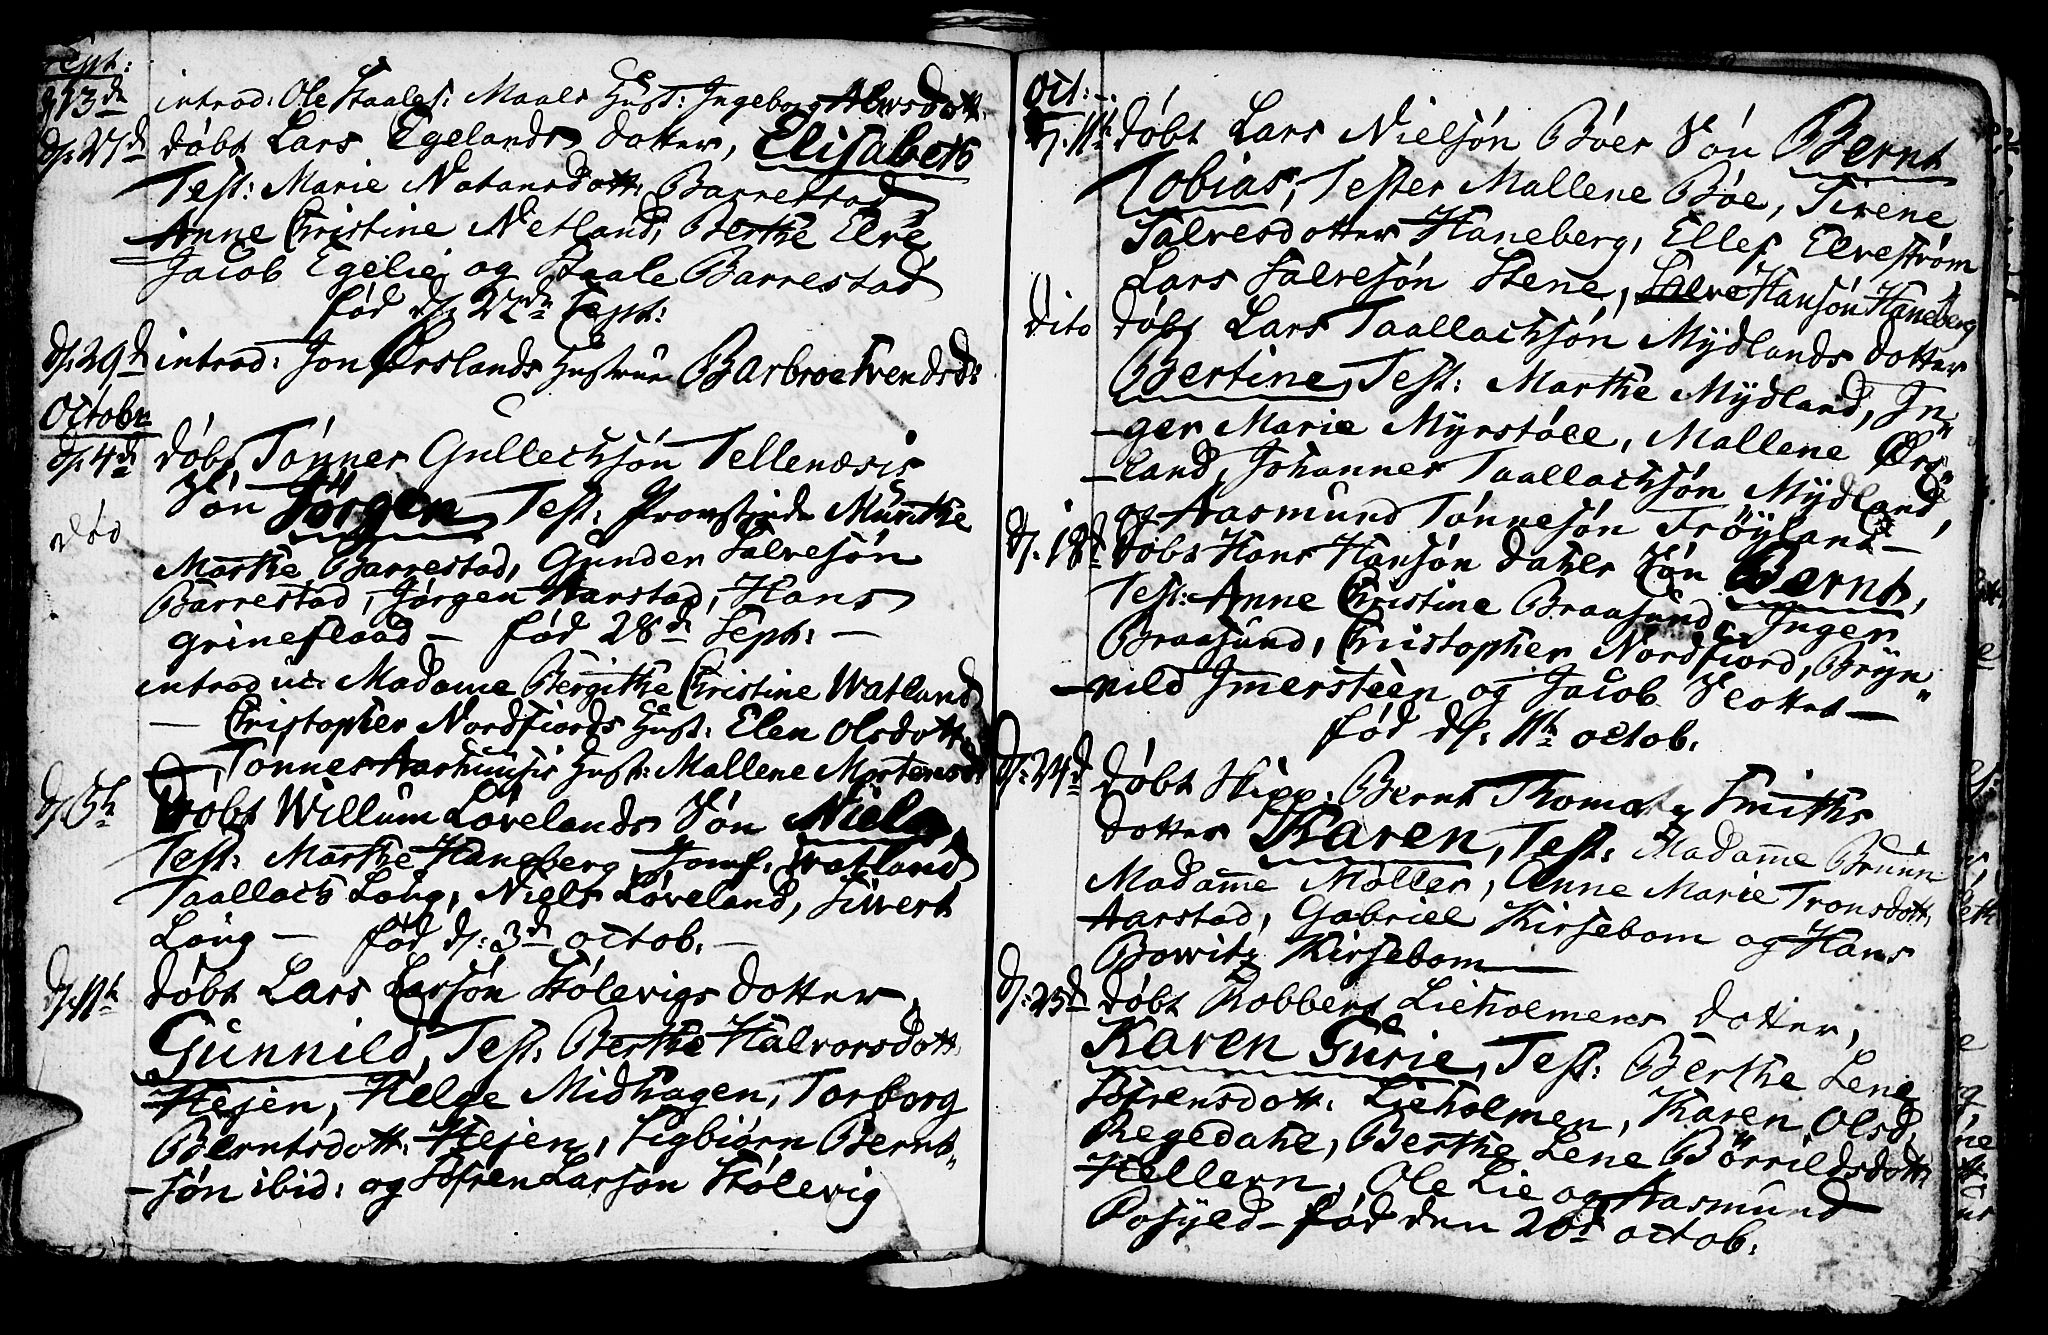 Sept:
d. 13de introd: Ole Staales: Maales Hust: Ingeborg
d. 27de døbt Lars Egelands dotter, Elisabeth
Test: Marie Natansdott: Barrestad
Anne Christine Netland, Berthe Elve
Jacob Egelie og Staale Barrestad
fød d. 22de Sept:
d. 29de introd: Jon Ørslands Hustrue Barbroe Svendsd:
Octobr
d. 4de døbt Tønnes Gullechsøn Tellenæsis
Søn Jørgen Test: Provstinde Munthe
dito
Marthe Barrestad, Gunder Salvesøn
Barrestad, Jørgen Aarstad, Hans
Grineflaad – fød 28de Sept: –
introd Madame Bergithe Christine Watland
– Christopher Nordfiords Hust: Elen Olsdott
– Tønnes Hust: Mallene Mortensd:
d. 5te Døbt Willum Løvelands Søn Niels,
Test: Marthe Haneberg, Jomf. Watland
Taallach Løug, Niels Løveland, Sivert
Løug – fød d. 3de octob. –
d. 11te døbt Lars Larsøn Stølevigs dotter,
Gunnild, Test: Berthe Halvorsdott.
Hejen, Helge Midhagen, Torborg
Berntsdott: Hejen, Sigbiørn Bernt-
-søn ibid: og Søfren Larsøn Stølevig
Oct: –
d. 11te døbt Lars Nielsøn Bøes Søn Bernt
Tobias, Testes Mallene Bøe, Sirene
Salvesdotter Haneberg, Ellef Elvestrøm
Lars Salvesøn Stene, Salve Hansøn Haneberg
dito døbt Lars Taallachsøn Mydlands dotter
Bertine, Test: Marthe Mydland, In-
-ger Marie Myrstøll, Mallene Ørs-
-land, Johannes Taallachsøn Mydland,
og Aasmund Tønnesøn Frøyland –
d. 18de Døbt Hans Hansøn Dahls Søn Bernt,
Test: Anne Christine Braasund, Inger
Braasund, Christopher Nordfiord, Bryn-
-nild Imersteen og Jacob Skottet –
fød d. 11te octob.
d. 24de døbt Skipp: Bernt Thomas Smiths
dotter Karen, Test: Madame Bruun
Madame Møller, Anne Marie Tronsdott.
Aarstad, Gabriel Kirsebom og Hans
Bowitz Kirsebom –
d. 25de døbt Robbert Lieholmens dotter,
Karen Gurie, Test: Berthe Lene
Søfrensdott: Lieholmen, Karen Olsd.
Regedahl, Berthe Lene Børrildsdott:
Hellern, Ole Lie og Aasmund
Rosyld – fød den 20de octob.